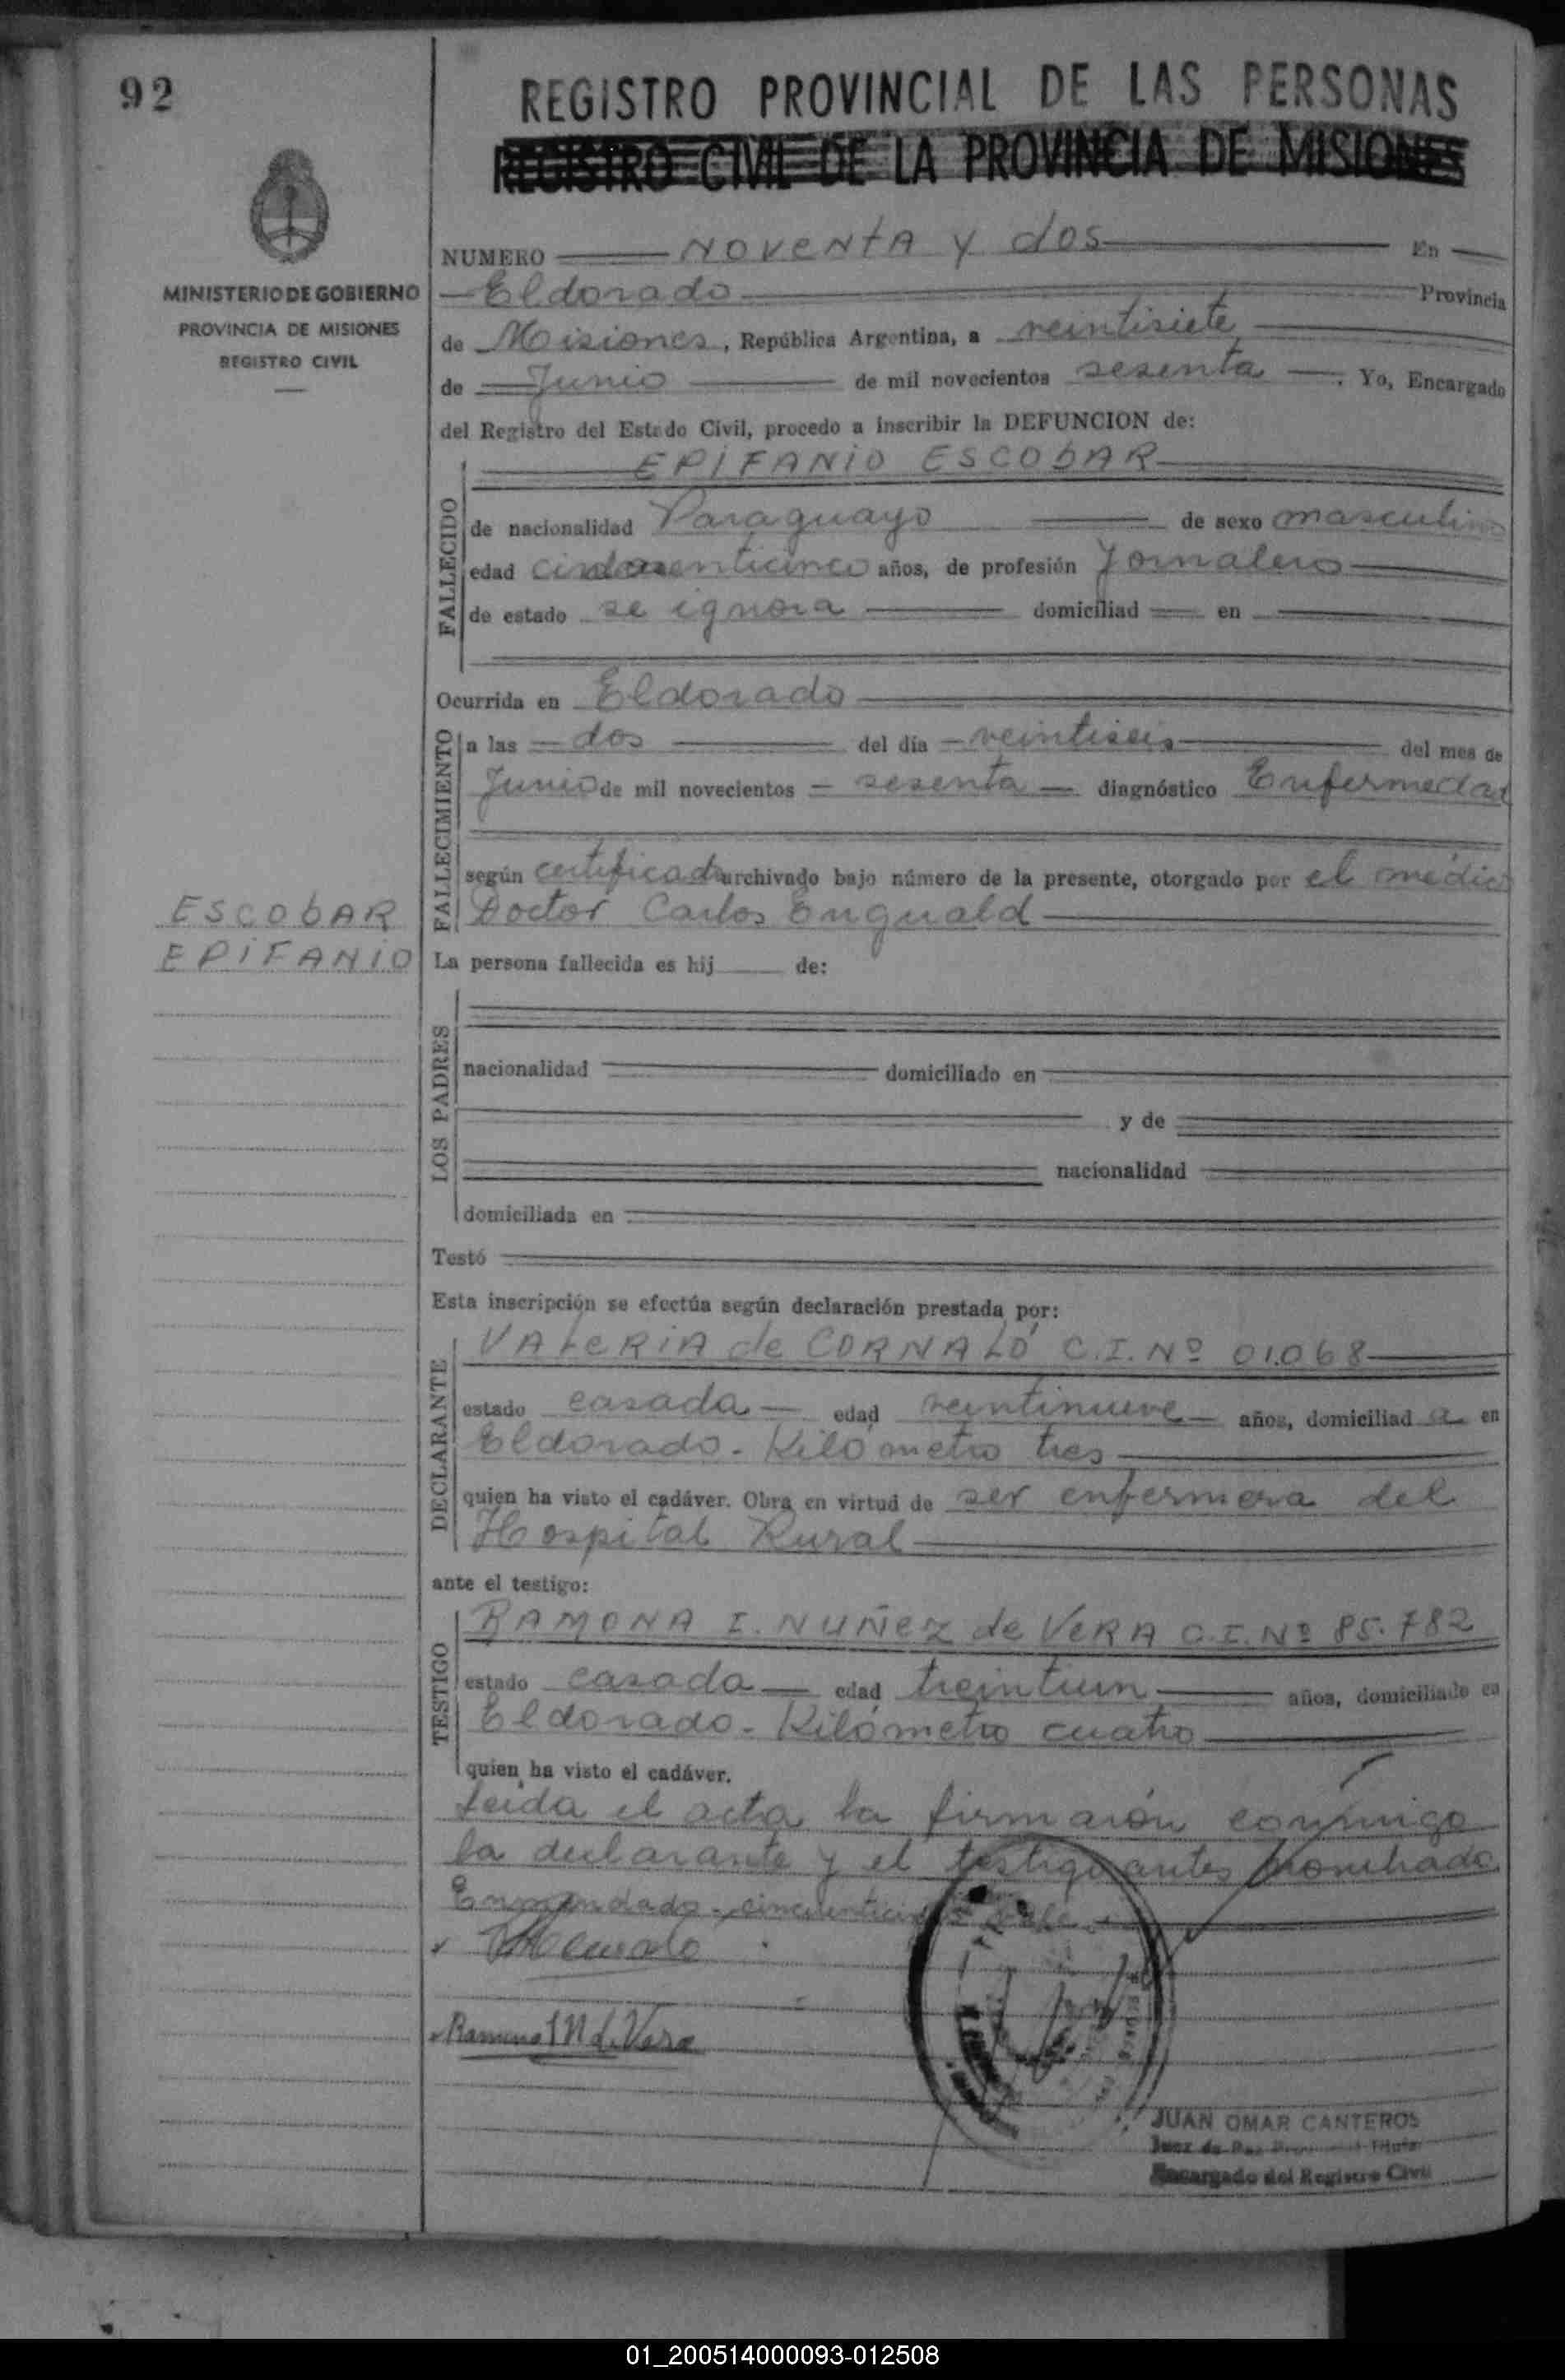 92
REGISTRO PROVINCIAL DE LAS PERSONAS
REGISTRO CIVIL DE LA PROVINCIA DE MISIONES
MINISTERIO DE GOBIERNO
PROVINCIA DE MISIONES
REGISTRO CIVIL
NUMERO NOVENTA Y dos En
Eldorado Provincia
de Misiones, República Argentina, a veintisiete
de Junio de mil novecientos sesenta. Yo, Encargado
del Registro del Estado Civil, procedo a inscribir la DEFUNCION de:
EPIFANIO ESCObAR
FALLECIDO
de nacionalidad Paraguayo de sexo masculino
edad cincuenticinco años, de profesión Jornalero
de estado se ignora domiciliad en
Ocurrida en Eldorado
FALLECIMIENTO
a las dos del día veintiseis del mes de
Junio de mil novecientos sesenta diagnóstico Enfermedad
según certificado archivado bajo número de la presente, otorgado por el médico
Doctor Carlos
ESCObAR
EPIFANIO
La persona fallecida es hij de:
LOS PADRES
nacionalidad domiciliado en
y de
nacionalidad
domiciliada en
Testó
Esta inscripción se efectúa según declaración prestada por:
DECLARANTE
VALERIA de CORNALÓ C.I. Nº 01.068
estado casada edad veintinueve años, domiciliad a en
Eldorado - Kilómetro tres
quien ha visto el cadáver. Obra en virtud de ser enfermera del
Hospital Rural
ante el testigo:
TESTIGO
RAMONA I. NUÑEZ de VERA C.I. Nº 85.782
estado casada edad treintiun años, domiciliado en
Eldorado - Kilómetro cuatro
quien ha visto el cadáver.
Leida el acta la firmarón conmigo
la declarante y el testigo antes nombrado
Enmendado - cincuenticinco vale
Ramona I N de Vera
JUAN OMAR CANTEROS
Juez de Paz
Encargado del Registro Civil
01_200514000093-012508